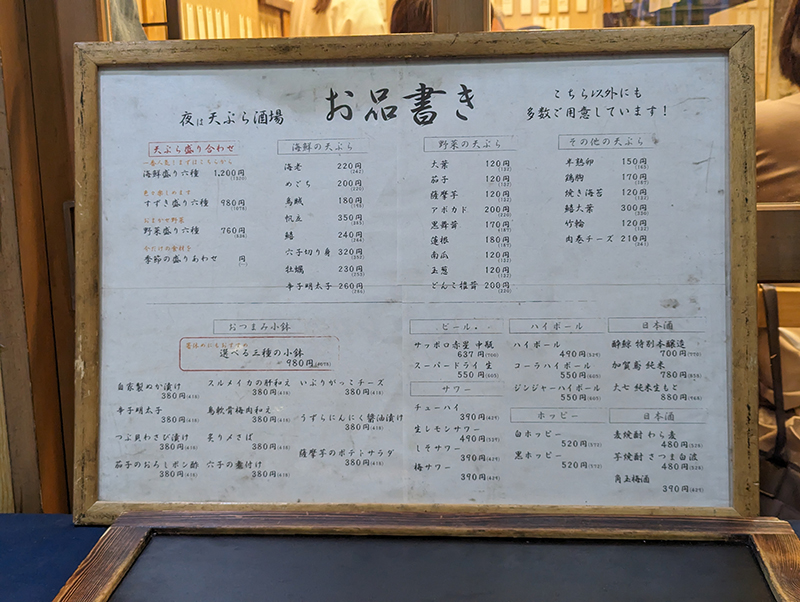 お品書き
夜は天ぷら酒場
こちら以外にも
多数ご用意しています！
天ぷら盛り合わせ
一番人気！まずはこちらから
海鮮盛り六種 1,200円
(1320)
色々楽しめます
すずき盛り六種 980円
(1078)
おまかせ野菜
野菜盛り六種 760円
(836)
季節の盛りあわせ 円
海鮮の天ぷら
海老 220円
(242)
めごち 200円
(220)
烏賊 180円
(198)
帆立 350円
(385)
鱚 240円
(264)
穴子切り身 320円
(352)
牡蠣 230円
(253)
辛子明太子 260円
(286)
野菜の天ぷら
大葉 120円
(132)
茄子 120円
(132)
薩摩芋 120円
(132)
アボカド 200円
(220)
黒舞茸 170円
(187)
蓮根 180円
(198)
南瓜 120円
(132)
玉葱 120円
(132)
どんこ椎茸 200円
(220)
その他の天ぷら
半熟卵 150円
(165)
鶏胸 170円
(187)
焼き海苔 120円
(132)
鱚大葉 300円
(330)
竹輪 120円
(132)
肉巻チーズ 210円
(231)
おつまみ小鉢
選べる三種の小鉢
980円(1078)
自家製ぬか漬け
380円(418)
スルメイカの肝和え
380円(418)
いぶりがっこチーズ
380円(418)
辛子明太子
380円(418)
鳥軟骨梅肉和え
380円(418)
うずらにんにく醤油漬け
380円(418)
つぶ貝わさび漬け
380円(418)
炙り〆さば
380円(418)
薩摩芋のポテトサラダ
380円(418)
茄子のおろしポン酢
380円(418)
穴子の煮付け
380円(418)
ビール
サッポロ赤星 中瓶
637円(700)
スーパードライ 生
550円(605)
サワー
チューハイ
390円(429)
生レモンサワー
490円(539)
しそサワー
390円(429)
梅サワー
390円(429)
ハイボール
ハイボール
490円(539)
コーラハイボール
550円(605)
ジンジャーハイボール
550円(605)
ホッピー
白ホッピー
520円(572)
黒ホッピー
520円(572)
日本酒
酔鯨 特別本醸造
700円(770)
加賀鳶 純米
780円(858)
大七 純米生もと
880円(968)
日本酒
麦焼酎 わら麦
480円(528)
芋焼酎 さつま白波
480円(528)
角玉梅酒
390円(429)